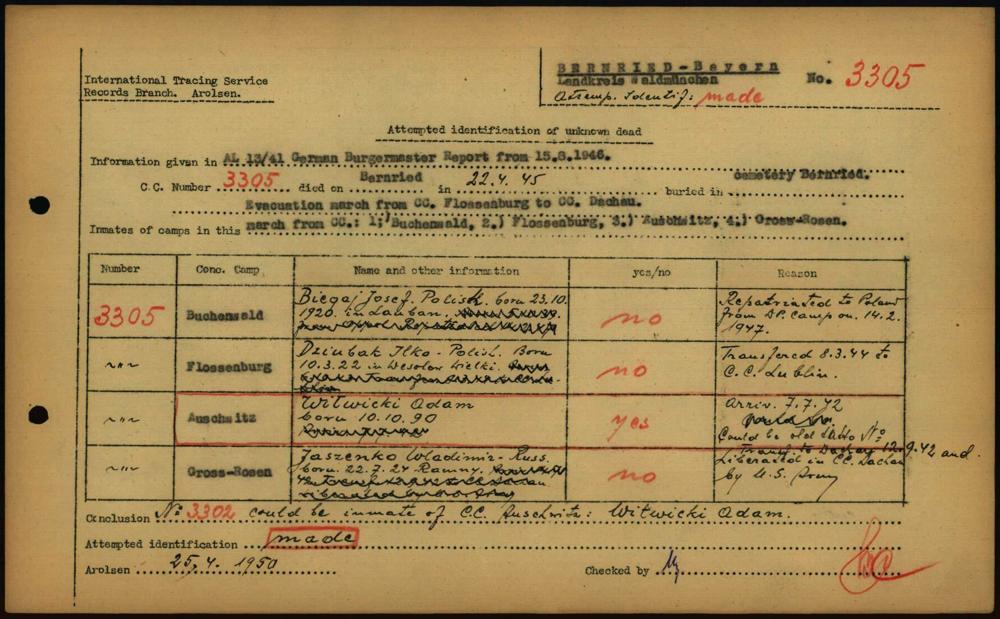 International Tracing Service
Records Branch. Arolsen.
BERNRIED-Bayern
Landkreis Waldmünchen
Attemp. Identif: made
No. 3305
Attempted identification of unknown dead
Information given in AL 13/41 German Burgermaster Report from 15.8.1946.
C.C. Number 3305 died on Bernried in 22.4.45 buried in cemetery Bernried.
Evacuation march from CC. Flossenburg to CC. Dachau.
Inmates of camps in this march from CC.: 1; Buchenwald, 2.) Flossenburg, 3.) Auschwitz, 4.) Gross-Rosen.
Number Conc. Camp Name and other information yes/no Reason
3305 Buchenwald
Biegaj Josef. Polish. born 23.10.
1920. in Lauban.
no
Repatriated to Poland
from DP. Camp on. 14.2.
1947.
-"- Flossenburg
Dziubak Ilko - Polish. Born
10.3.22 in Wesolow Wielki.
no
Transfered 8.3.44 to
C.C. Lublin.
-"- Auschwitz
Witwicki Adam
born 10.10.90
yes
Arriv. 7.7.42
Could be old No
-"- Gross-Rosen
Jaszenko Wladimir - Russ.
born. 22.7.24
no
Transf. to Dachau 12.9.42 and.
Liberated in CC. Dachau
by U.S. Army
Conclusion No 3302 could be inmate of C.C. Auschwitz: Witwicki Adam.
Attempted identification made
Arolsen 25,4. 1950
Checked by